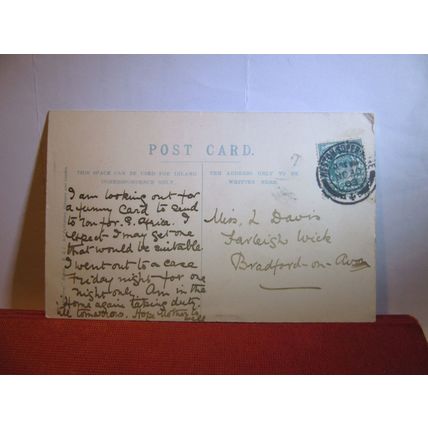 POST CARD.
THIS SPACE CAN BE USED FOR INLAND
CORRESPONDENCE ONLY.
THE ADDRESS ONLY TO BE
WRITTEN HERE.
I am looking out for
a funny card to send
to you for S. Africa. I
expect I may get one
that would be suitable
I went out to a case
Friday night for one
night only. Am in the
Home again taking duty
till tomorrow. Hope Mother is
well
Miss L Davis
Farleigh Wick
Bradford-on-Avon